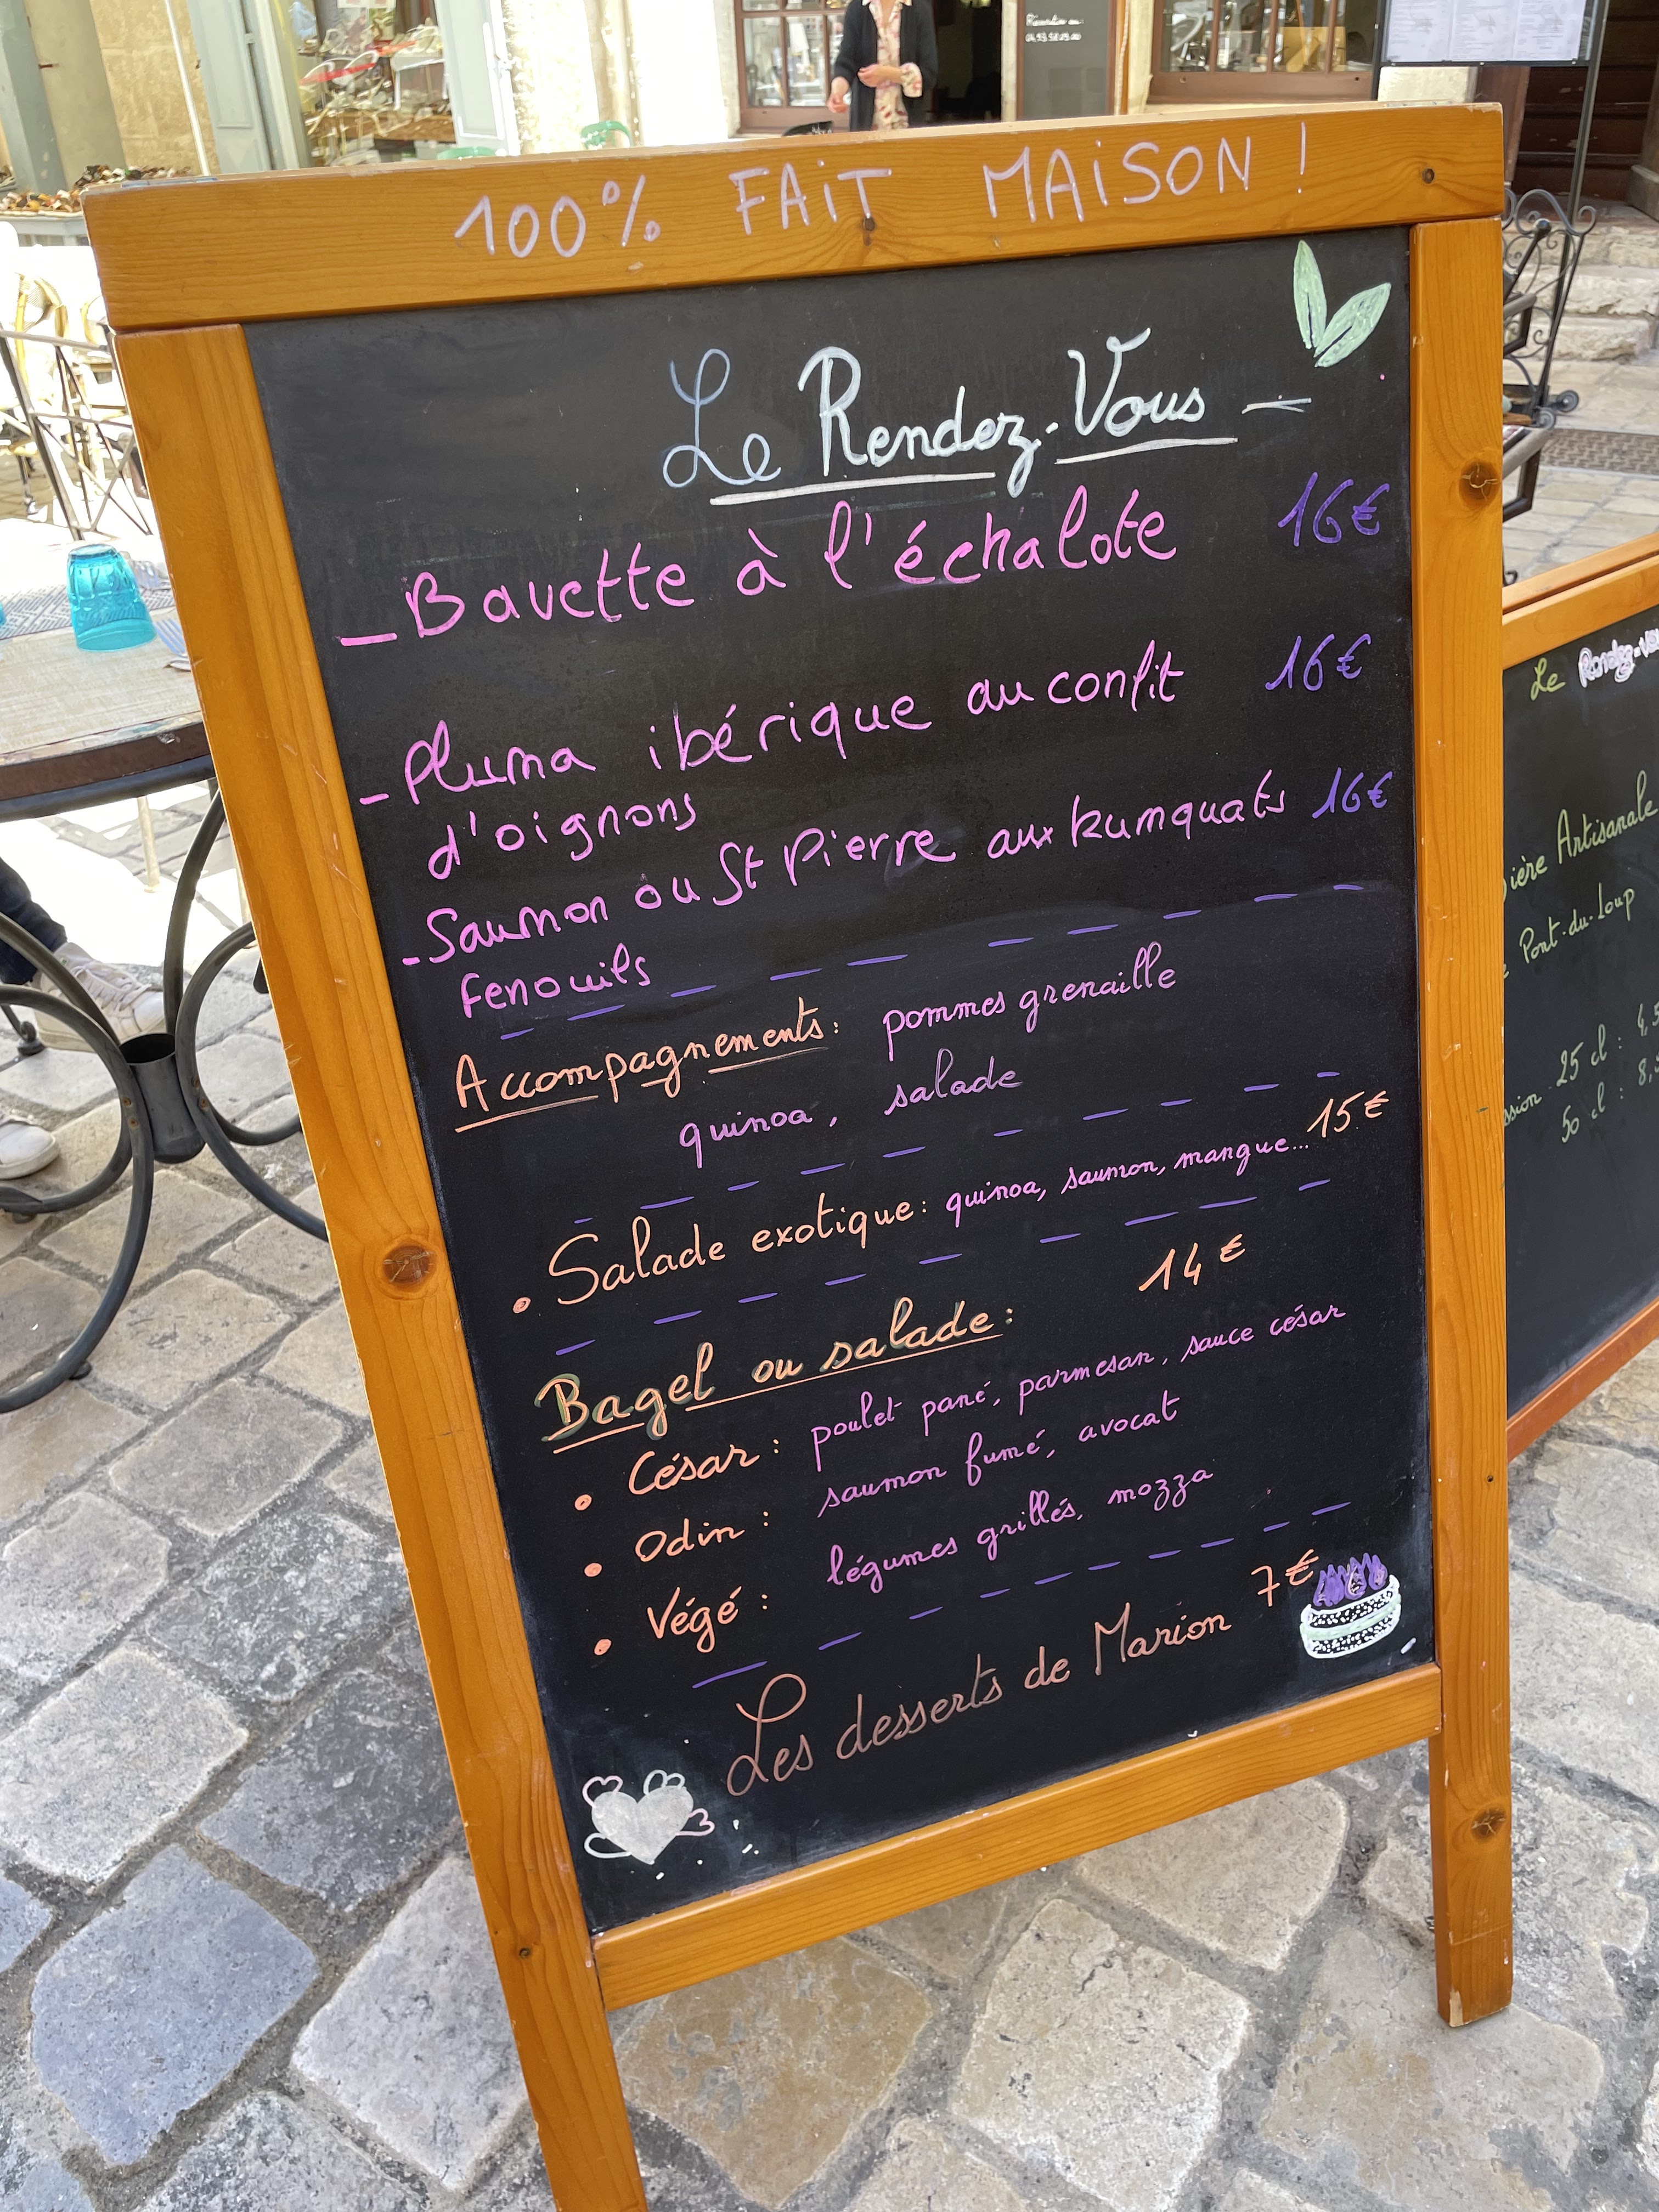 100% FAiT MAiSON !
Le Rendez-Vous
- Bavette à l'échalote 16€
- Pluma ibérique au confit 16€
d'oignons
- Saumon ou St Pierre aux kumquats 16€
fenouils
Accompagnements : pommes grenaille
quinoa, salade
• Salade exotique : quinoa, saumon, mangue... 15€
Bagel ou salade : 14€
• César : poulet pané, parmesan, sauce césar
• Odin : saumon fumé, avocat
• Végé : légumes grillés, mozza
Les desserts de Marion 7€
Le Rendez-vou
ière Artisanale
Pont-du-Loup
ssion 25 cl : 4,5
50 cl : 8,